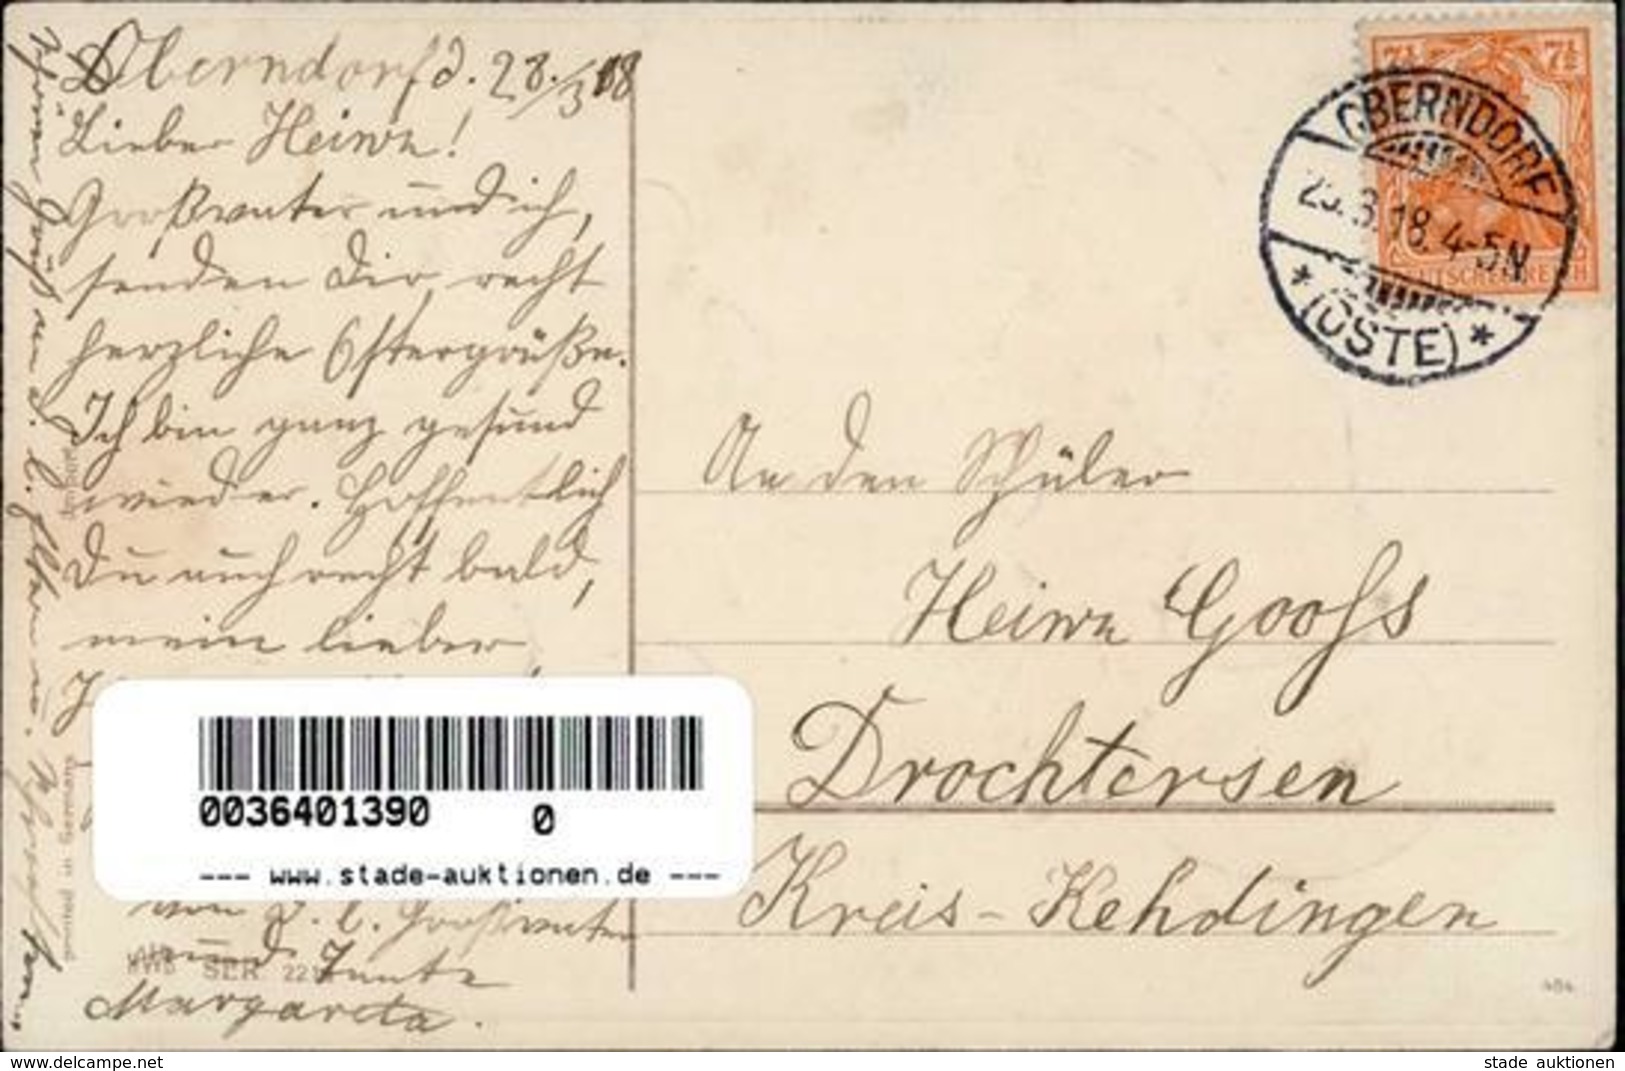 Oberndorf d. 28./3 18
Lieber Heinz!
Großvater und ich,
senden Dir, recht
herzliche Ostergrüße.
Ich bin ganz gesund
wieder. Hoffentlich
Du auch recht bald,
mein lieber
von d. l. Großvater
und Tante
Margareta.
Schönen Gruß an d. l. Eltern u.
OBERNDORF
18. 4-5N
* (OSTE) *
7½ 7½
DEUTSCHES REICH
An den Schüler
Heinz Goohs
Drochtersen
Kreis-Kehdingen
0036401390 0
--- www.stade-auktionen.de ---
printed in Germany
SER
484
www.delcampe.net
stade_auktionen